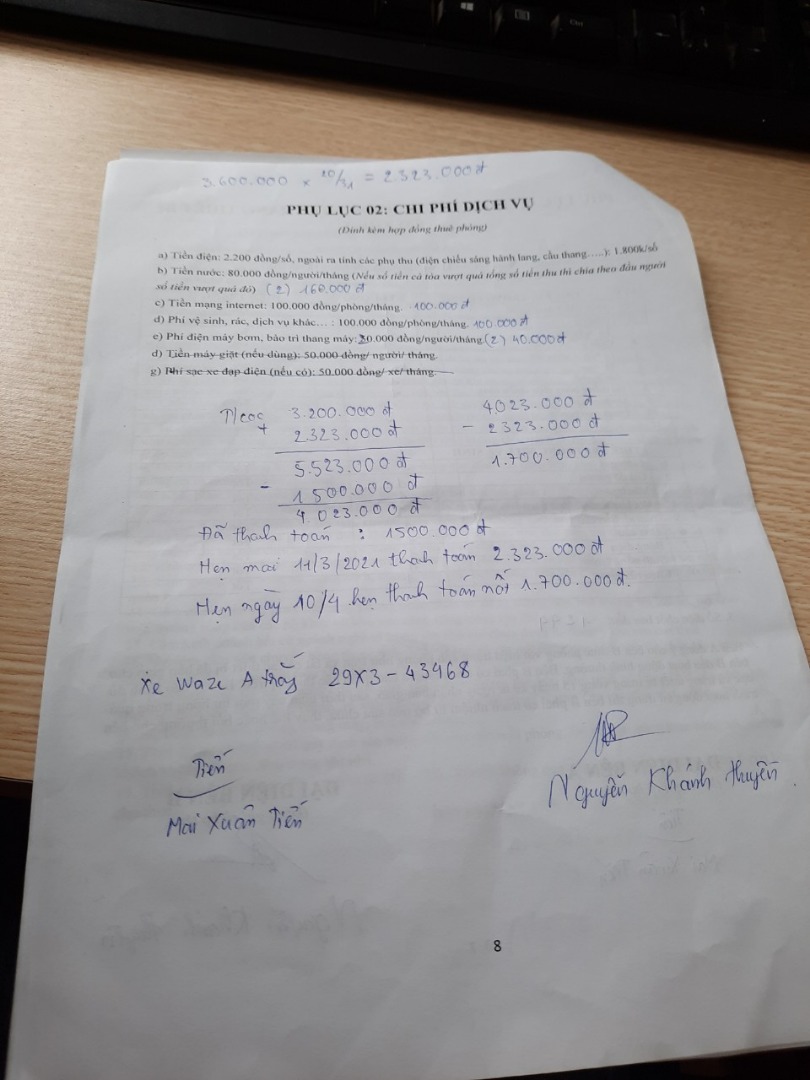 3.600.000 x 20/31 = 2323.000đ
PHỤ LỤC 02: CHI PHÍ DỊCH VỤ
(Đính kèm hợp đồng thuê phòng)
a) Tiền điện: 2.200 đồng/số, ngoài ra tính các phụ thu (điện chiếu sáng hành lang, cầu thang…..): 1.800k/số
b) Tiền nước: 80.000 đồng/người/tháng (Nếu số tiền cả tòa vượt quá tổng số tiền thu thì chia theo đầu người
số tiền vượt quá đó) (2) 160.000đ
c) Tiền mạng internet: 100.000 đồng/phòng/tháng. 100.000đ
d) Phí vệ sinh, rác, dịch vụ khác… : 100.000 đồng/phòng/tháng. 100.000đ
e) Phí điện máy bơm, bảo trì thang máy: 20.000 đồng/người/tháng (2) 40.000đ
d) Tiền máy giặt (nếu dùng): 50.000 đồng/ người/ tháng.
g) Phí sạc xe đạp điện (nếu có): 50.000 đồng/ xe/ tháng.
T/cọc 3.200.000 đ
+ 2.323.000 đ
5.523.000 đ
- 1 500.000 đ
4 023.000 đ
4023.000 đ
- 2323.000 đ
1.700.000 đ
Đã thanh toán : 1500.000 đ
Hẹn mai 11/3/2021 thanh toán 2.323.000 đ
Hẹn ngày 10/4 hẹn thanh toán nốt 1.700.000 đ.
Xe Waze A trắng 29X3-43468
Tiến
Mai Xuân Tiến
Nguyễn Khánh Huyền
8